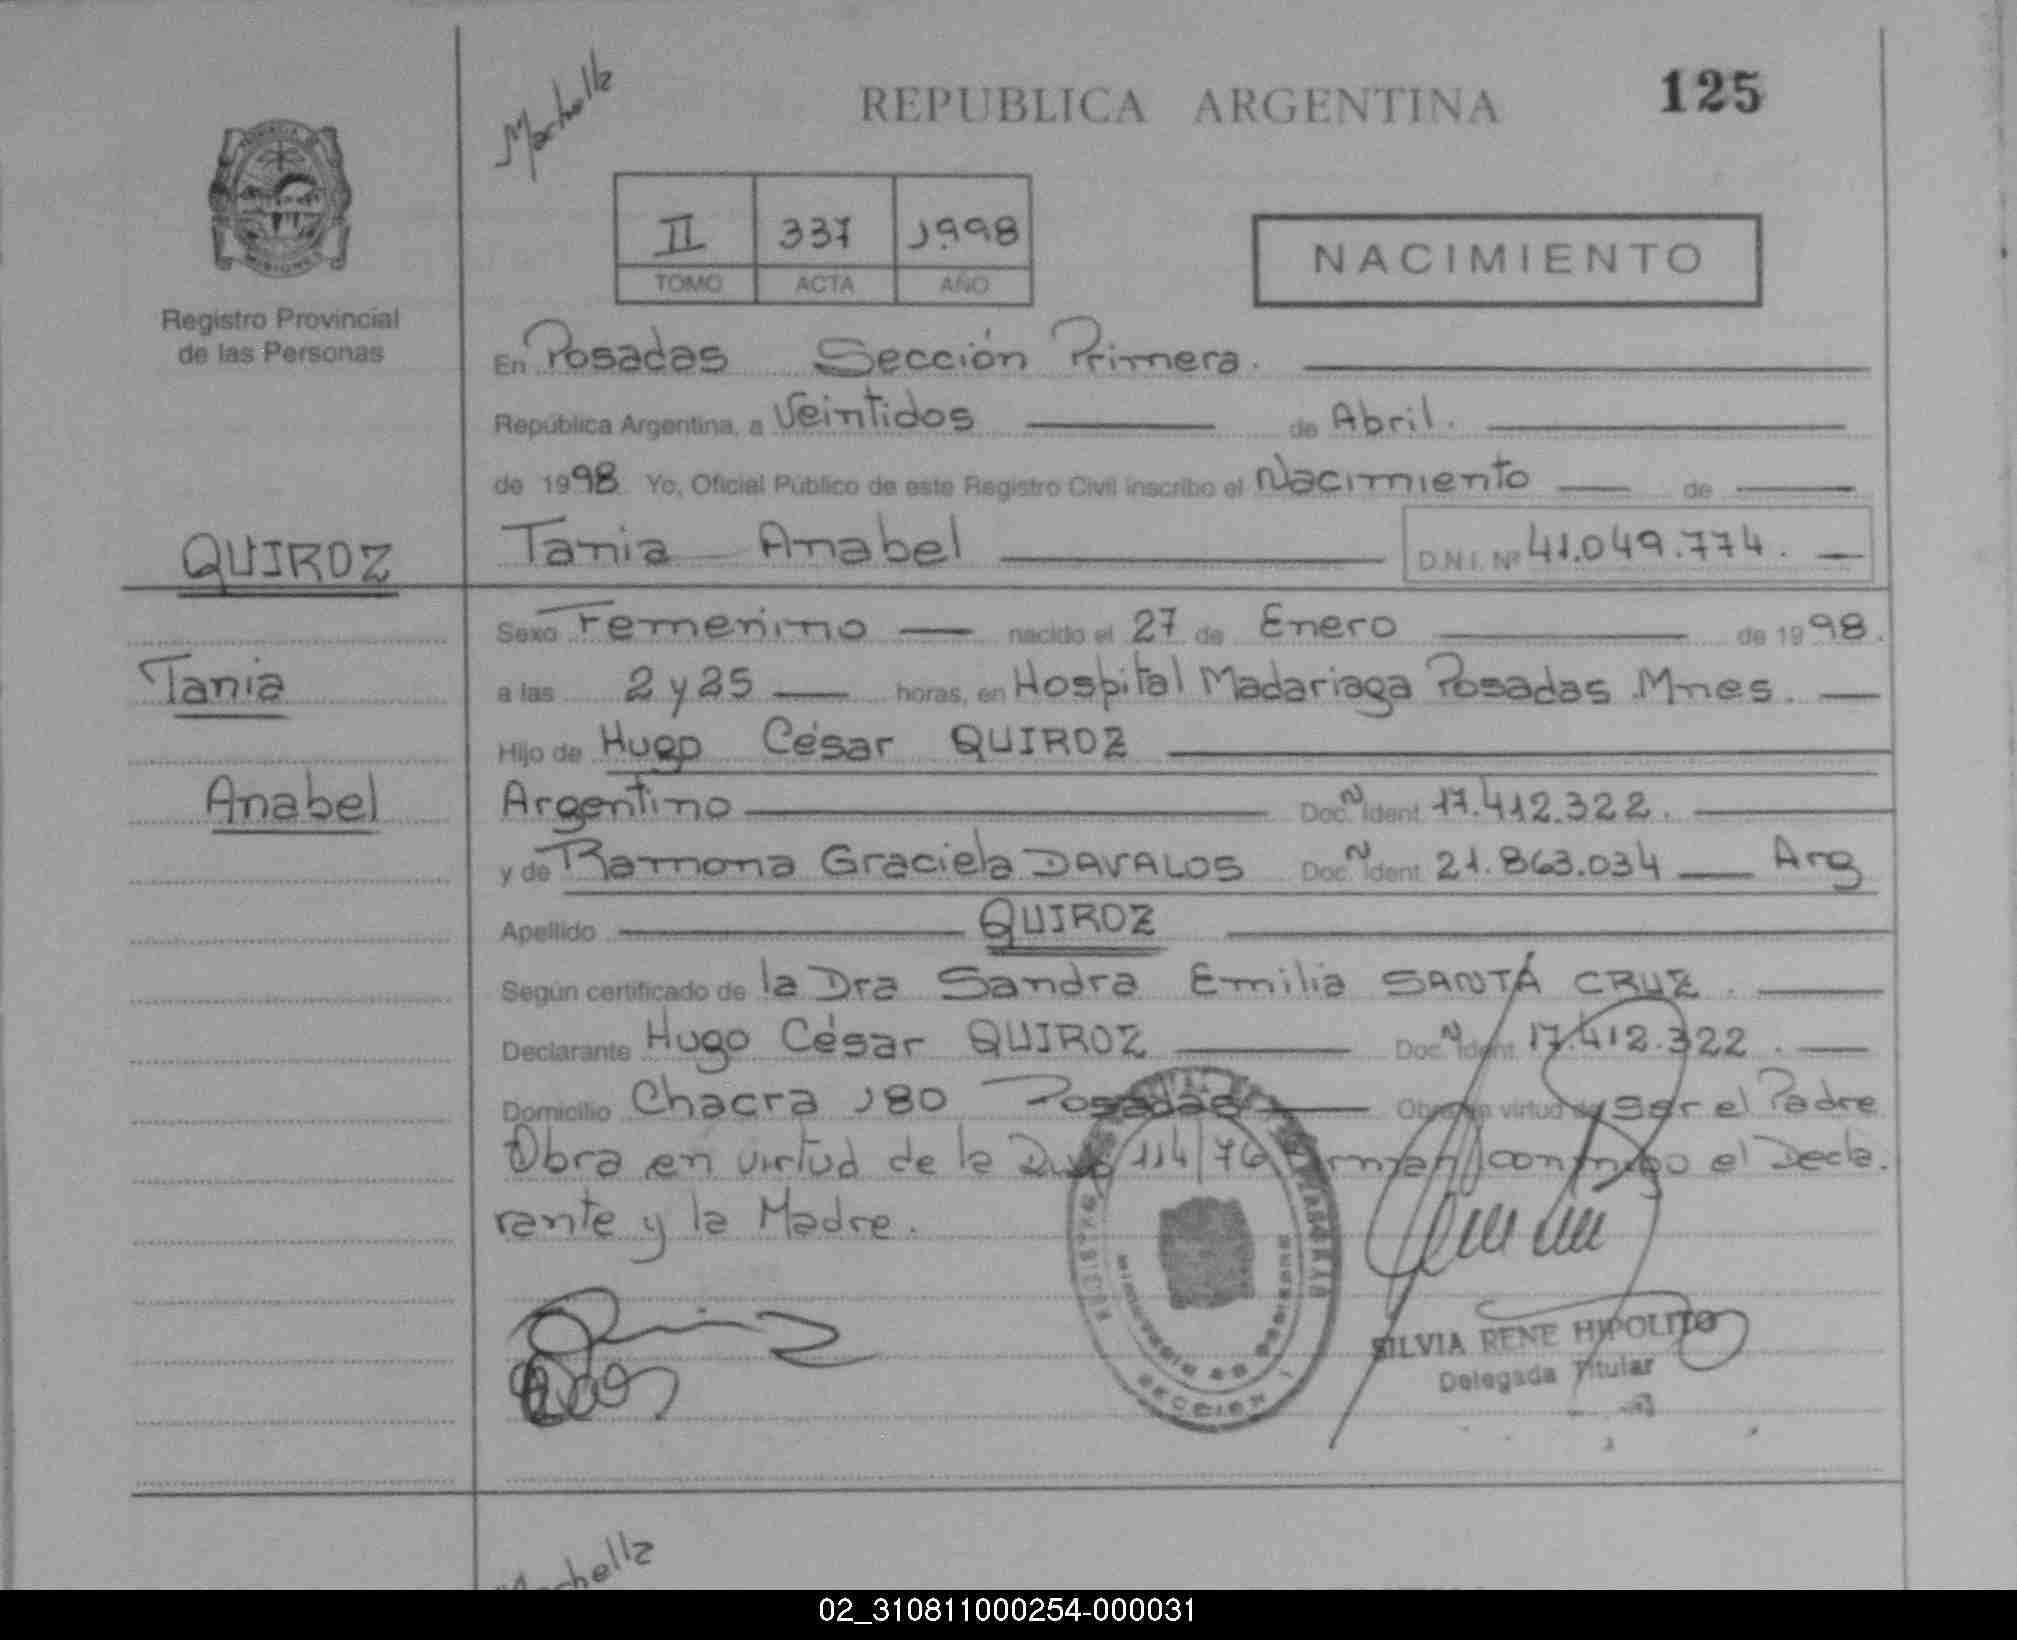 Machella
REPUBLICA ARGENTINA
125
PROVINCIA DE
MISIONES
Registro Provincial
de las Personas
II 337 1998
TOMO ACTA AÑO
NACIMIENTO
En Posadas Sección Primera.
República Argentina, a Veintidos de Abril.
de 1998 Yo, Oficial Público de este Registro Civil inscribo el Nacimiento de
QUIROZ
Tania Anabel D.N.I. Nº 41.049.774.
Sexo Femenino nacido el 27 de Enero de 1998.
Tania
a las 2 y 25 horas, en Hospital Madariaga Posadas Mnes.
Hijo de Hugo César QUIROZ
Anabel
Argentino Doc. N Ident 17.412.322.
y de Ramona Graciela DAVALOS Doc. N Ident 21.863.034 Arg
Apellido QUIROZ
Según certificado de la Dra Sandra Emilia SANTA CRUZ.
Declarante Hugo César QUIROZ Doc. N Ident. 17.412.322.
Domicilio Chacra 180 Posadas Obra en virtud de ser el Padre
Obra en virtud de la 114/76 conmigo el Decla.
rante y la Madre.
SECCION 1
SILVIA RENE HIPOLITO
Delegada Titular
02_310811000254-000031